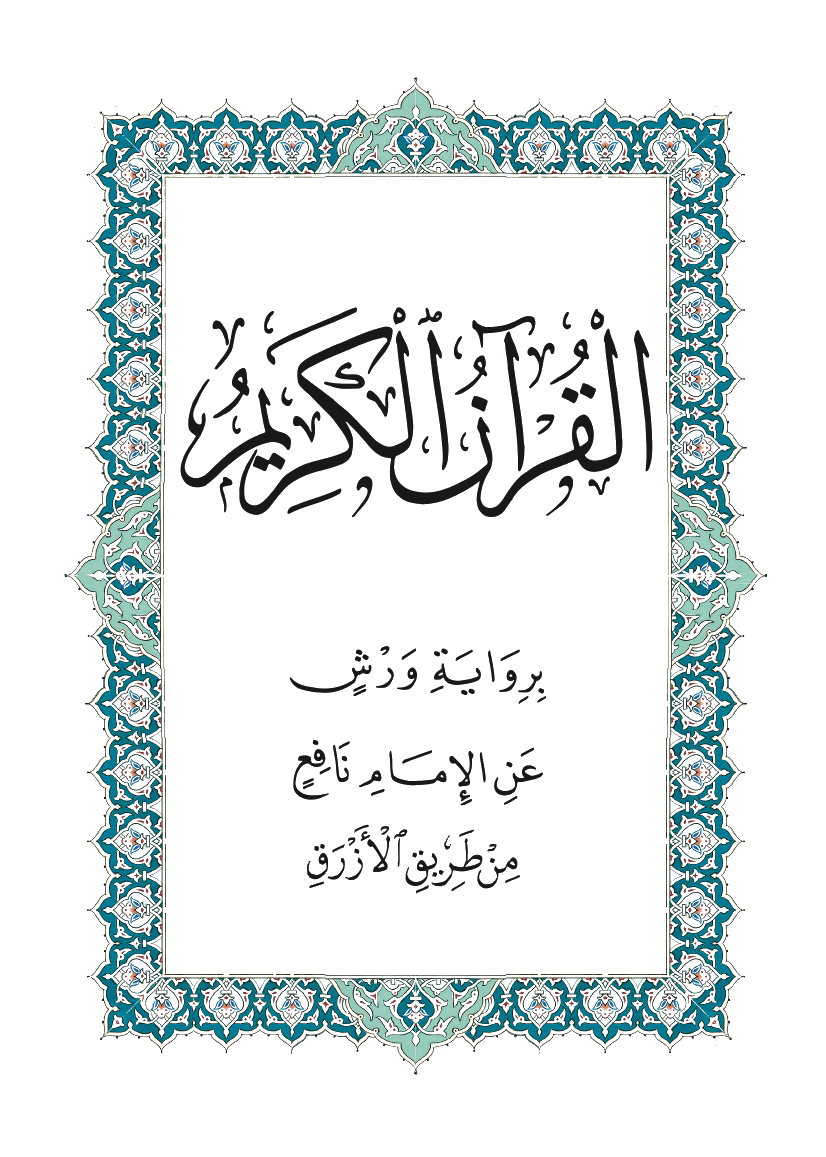 الْقُرْآنُ ٱلْكَرِيمُ
بِرِوَايَةِ وَرْشٍ
عَنِ الإِمَامِ نَافِعٍ
مِنْ طَرِيقِ ٱلْأَزْرَقِ